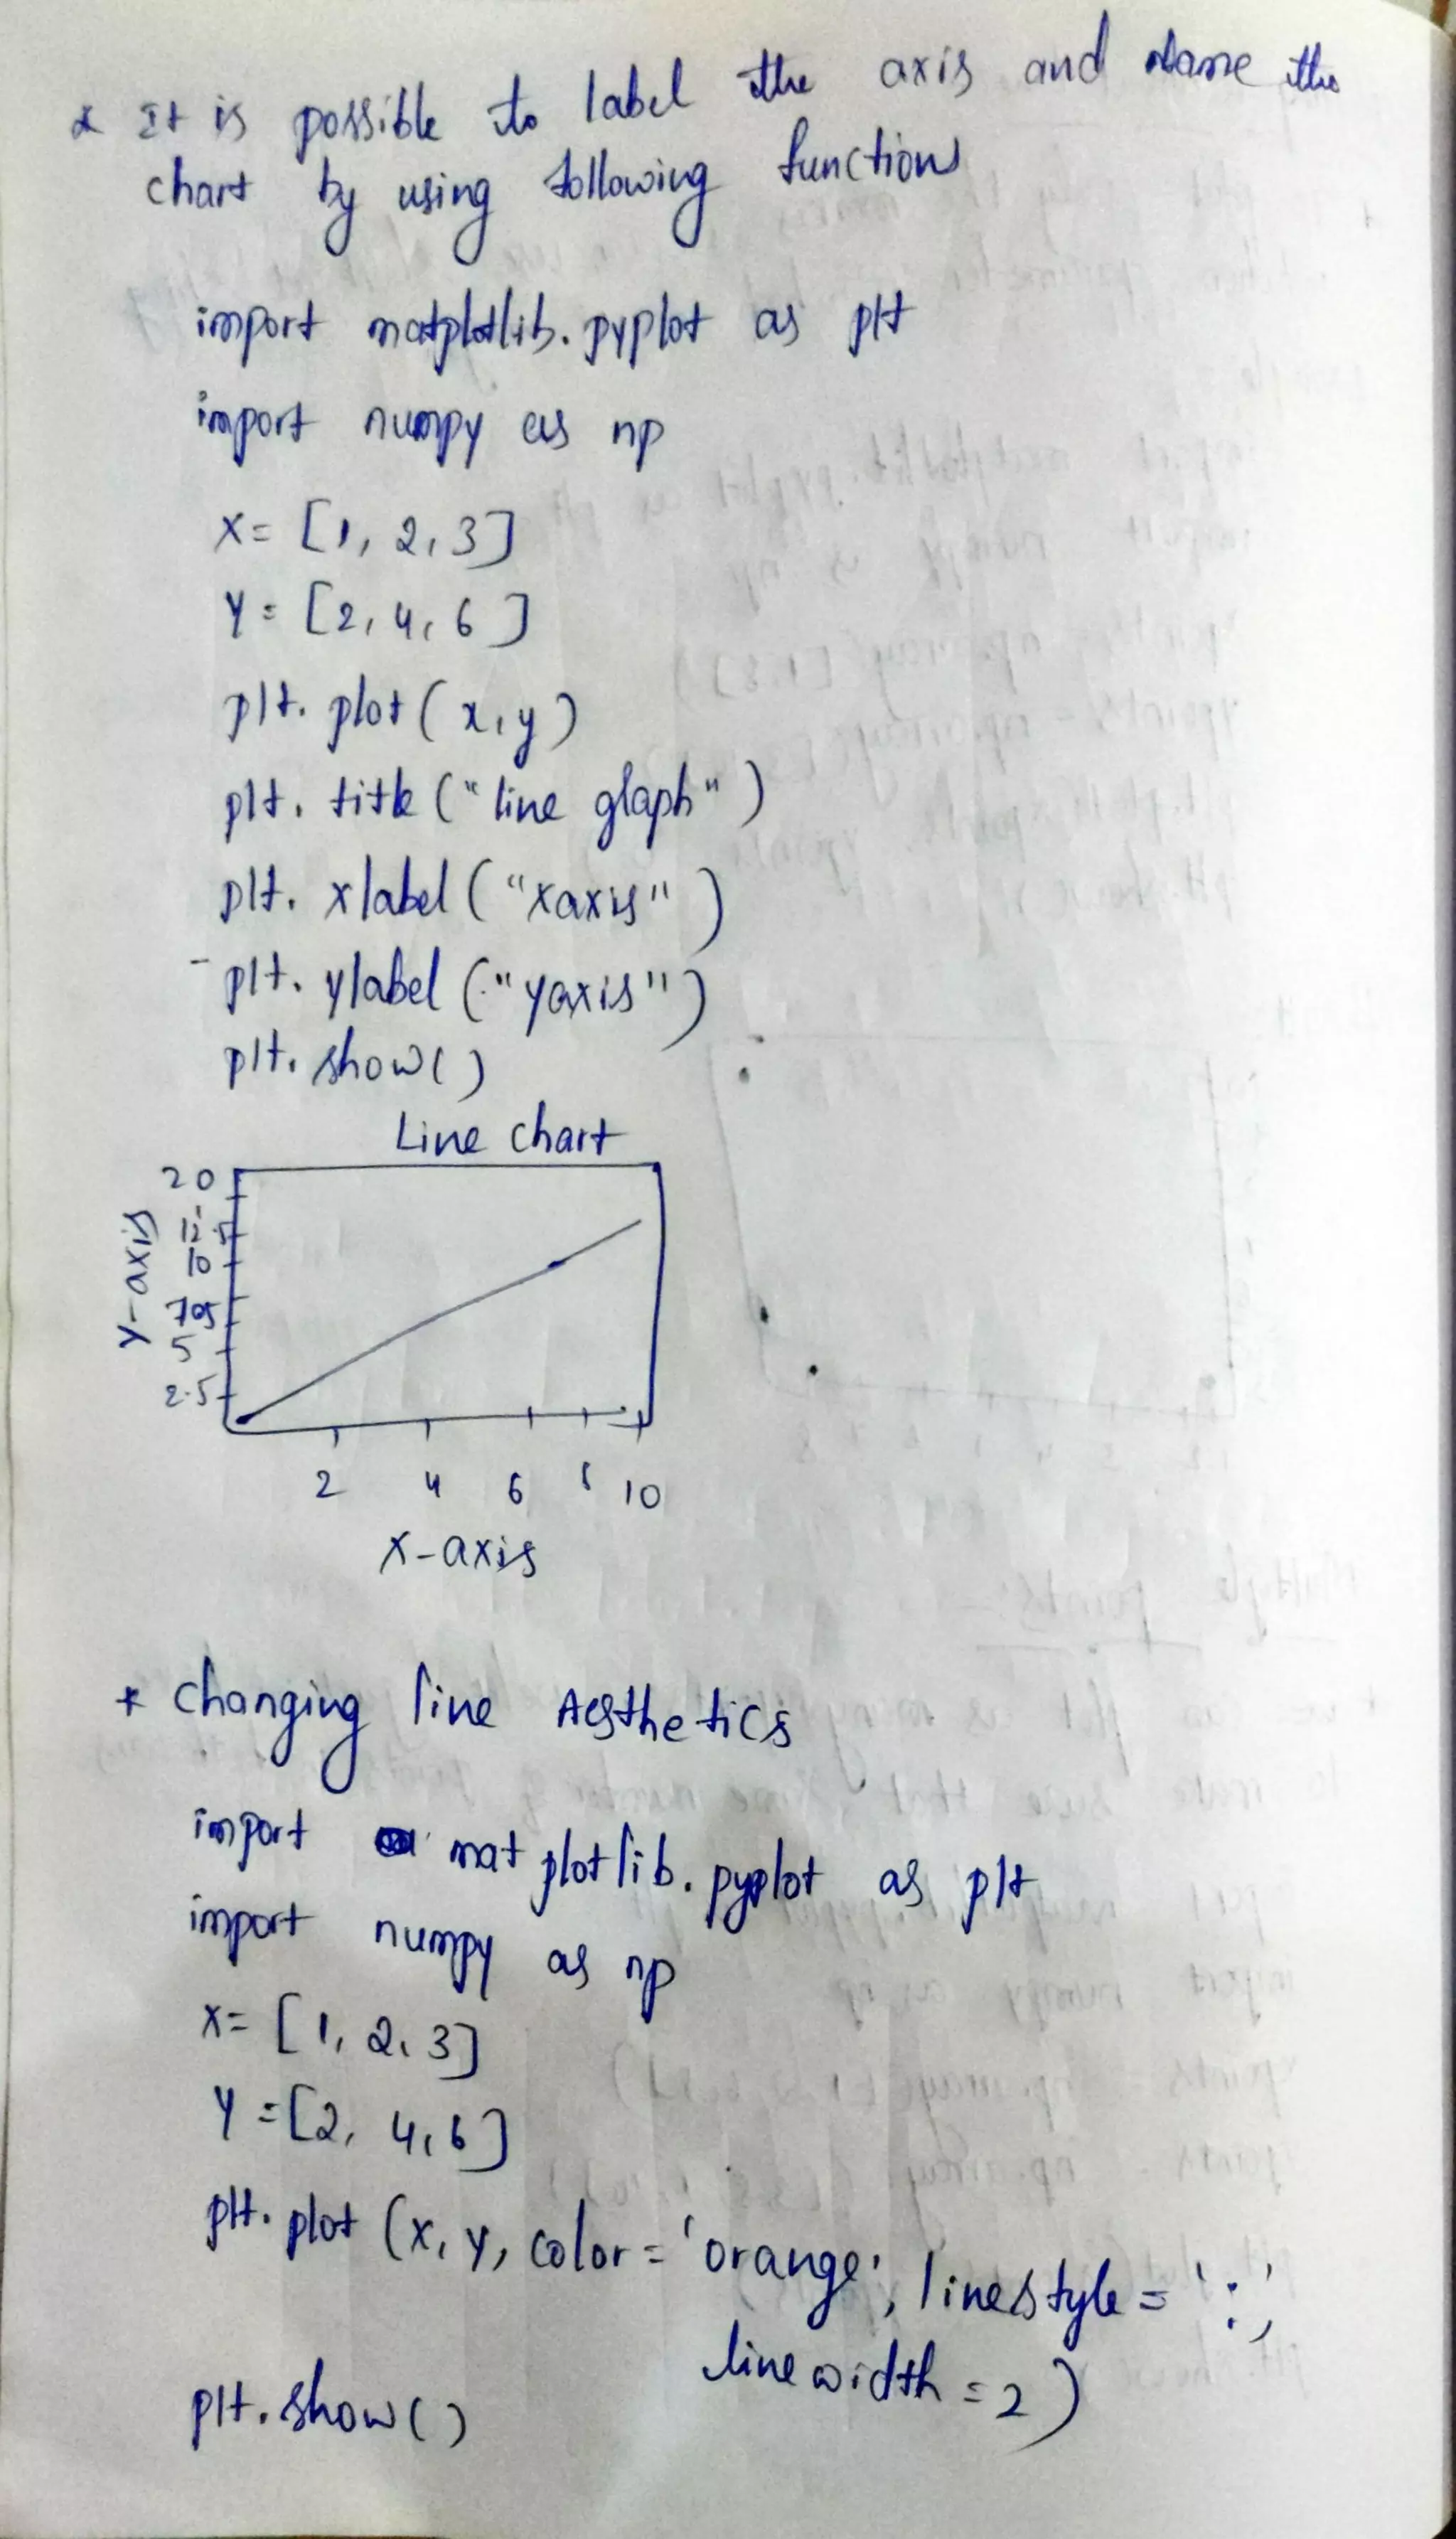 * It is possible to label the axis and Name the
chart by using following functions
import matplotlib.pyplot as plt
import numpy as np
x= [1, 2, 3]
y= [2, 4, 6]
plt. plot (x, y)
plt. title ("line graph")
plt. xlabel ("xaxis")
- plt. ylabel ("yaxis")
plt. show()
Line chart
20
12.5
10
7.5
5
2.5
y-axis
2 4 6 8 10
x-axis
* Changing line Aesthetics
import matplotlib.pyplot as plt
import numpy as np
x= [1, 2, 3]
y= [2, 4, 6]
plt. plot (x, y, color = 'orange', linestyle = ':',
linewidth = 2)
plt. show()